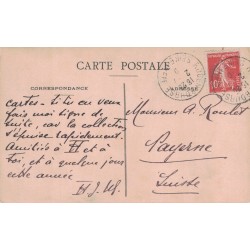 CARTE POSTALE
CORRESPONDANCE
ADRESSE
cartes - si tu en veux
fais moi signe de
suite, car la collection
s'épuise rapidement.
Amitiés à H et à
toi, et à quelque jour
cette année
Monsieur A. Roulet
Payerne
Suisse